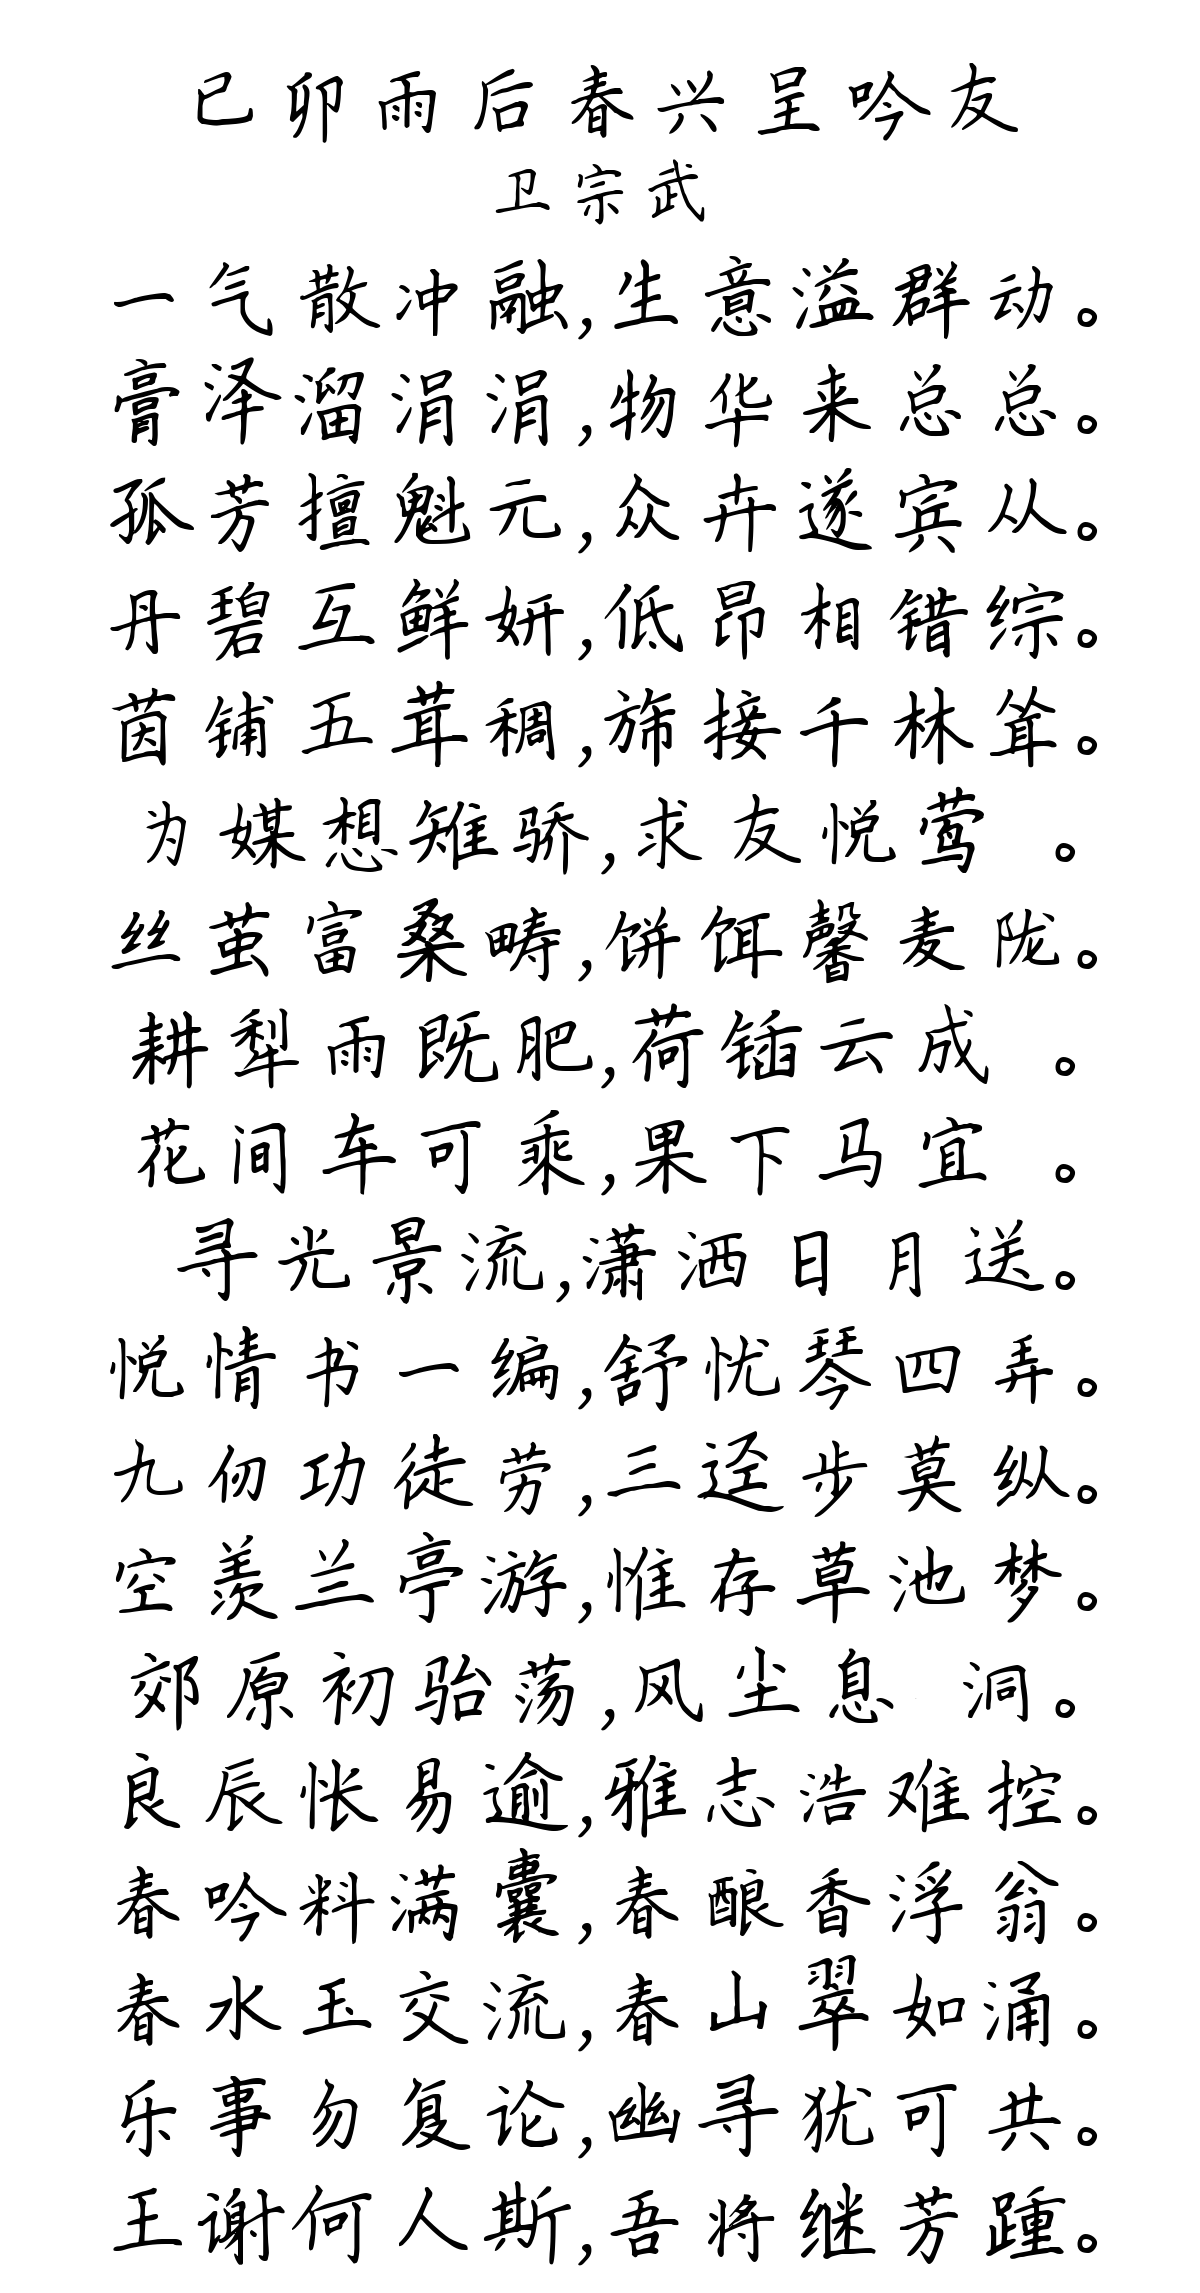 已卯雨后春兴呈吟友
卫宗武
一气散冲融,生意溢群动。
膏泽溜涓涓,物华来总总。
孤芳擅魁元,众卉遂宾从。
丹碧互鲜妍,低昂相错综。
茵铺五茸稠,旆接千林耸。
为媒想雉骄,求友悦莺 。
丝茧富桑畴,饼饵馨麦陇。
耕犁雨既肥,荷锸云成 。
花间车可乘,果下马宜 。
寻光景流,潇洒日月送。
悦情书一编,舒忧琴四弄。
九仞功徒劳,三迳步莫纵。
空羡兰亭游,惟存草池梦。
郊原初骀荡,风尘息 洞。
良辰怅易逾,雅志浩难控。
春吟料满囊,春酿香浮瓮。
春水玉交流,春山翠如涌。
乐事勿复论,幽寻犹可共。
王谢何人斯,吾将继芳踵。